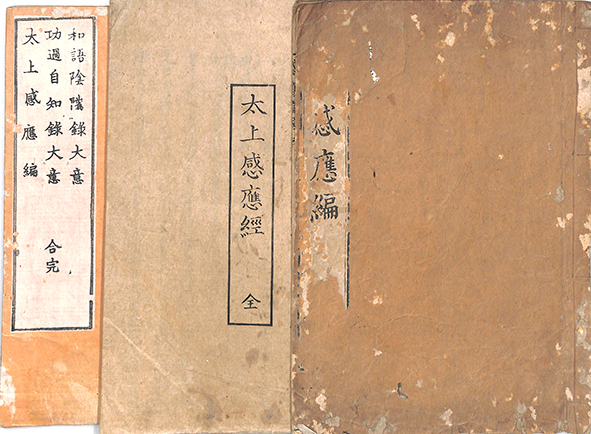 感應編
太上感應經 全
和語陰隲録大意
功過自知録大意 合完
太上感應編